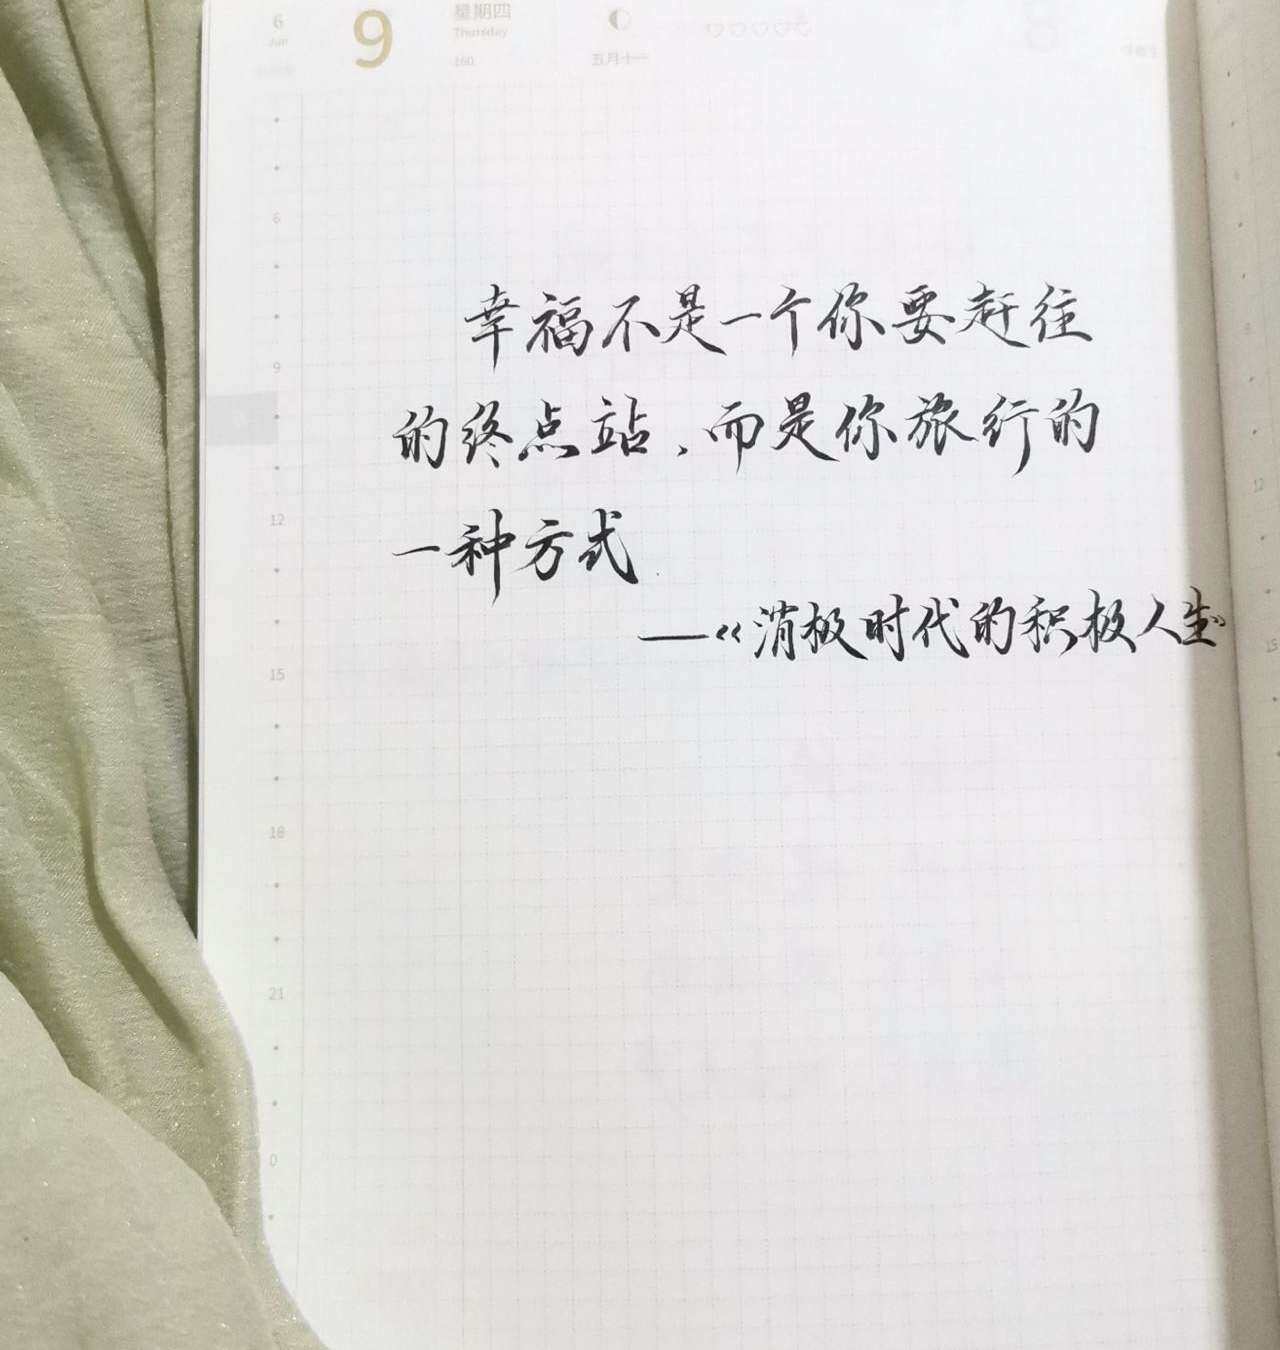 6 9 星期四
Jun Thursday
160 五月十一
幸福不是一个你要赶往
的终点站,而是你旅行的
一种方式
——《消极时代的积极人生》
6
9
12
15
18
21
0
8
12
15